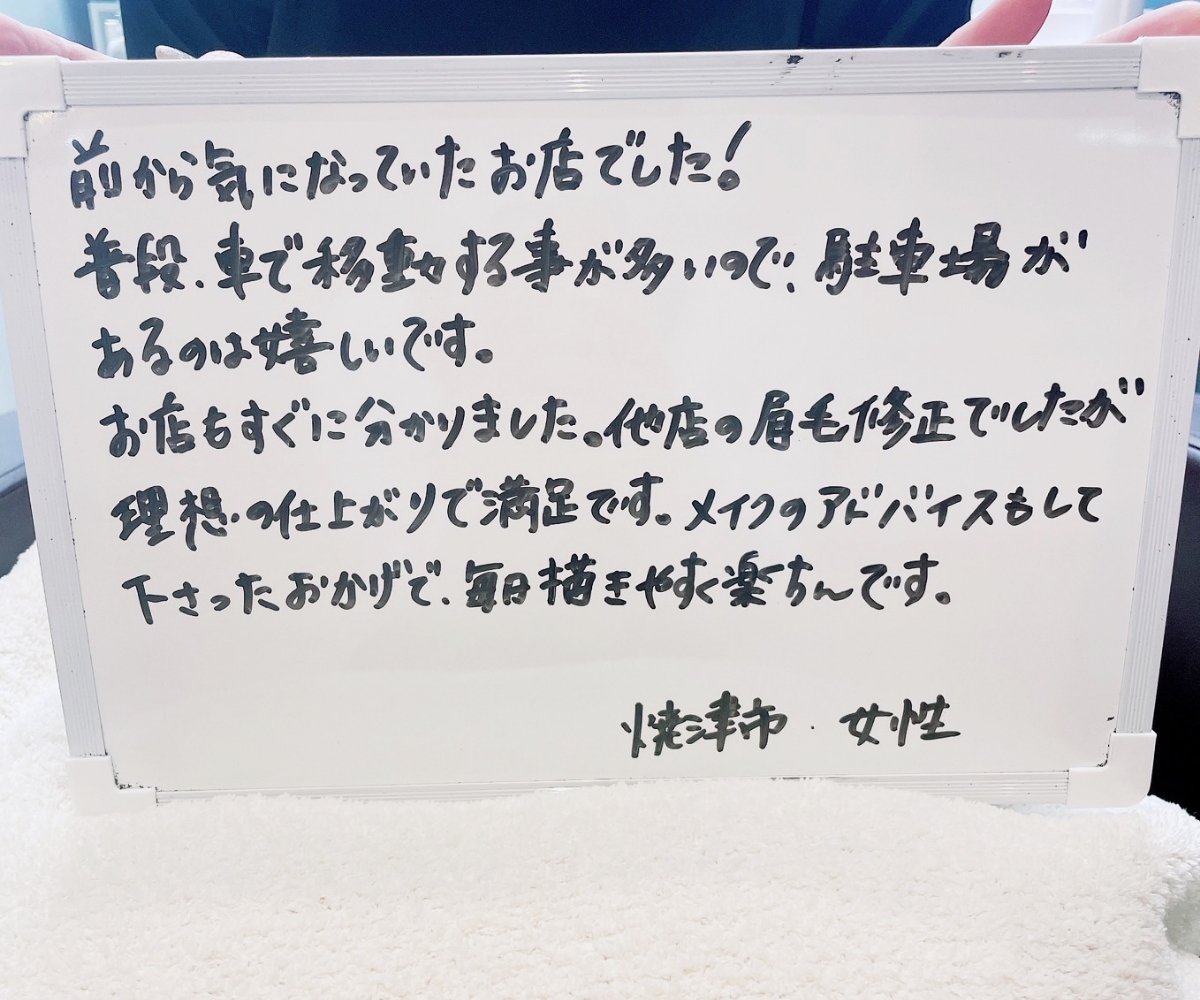 前から気になっていたお店でした!
普段、車で移動する事が多いので、駐車場が
あるのは嬉しいです。
お店もすぐに分かりました。他店の眉毛修正でしたが
理想の仕上がりで満足です。メイクのアドバイスもして
下さったおかげで、毎日描きやすく楽ちんです。
焼津市・女性